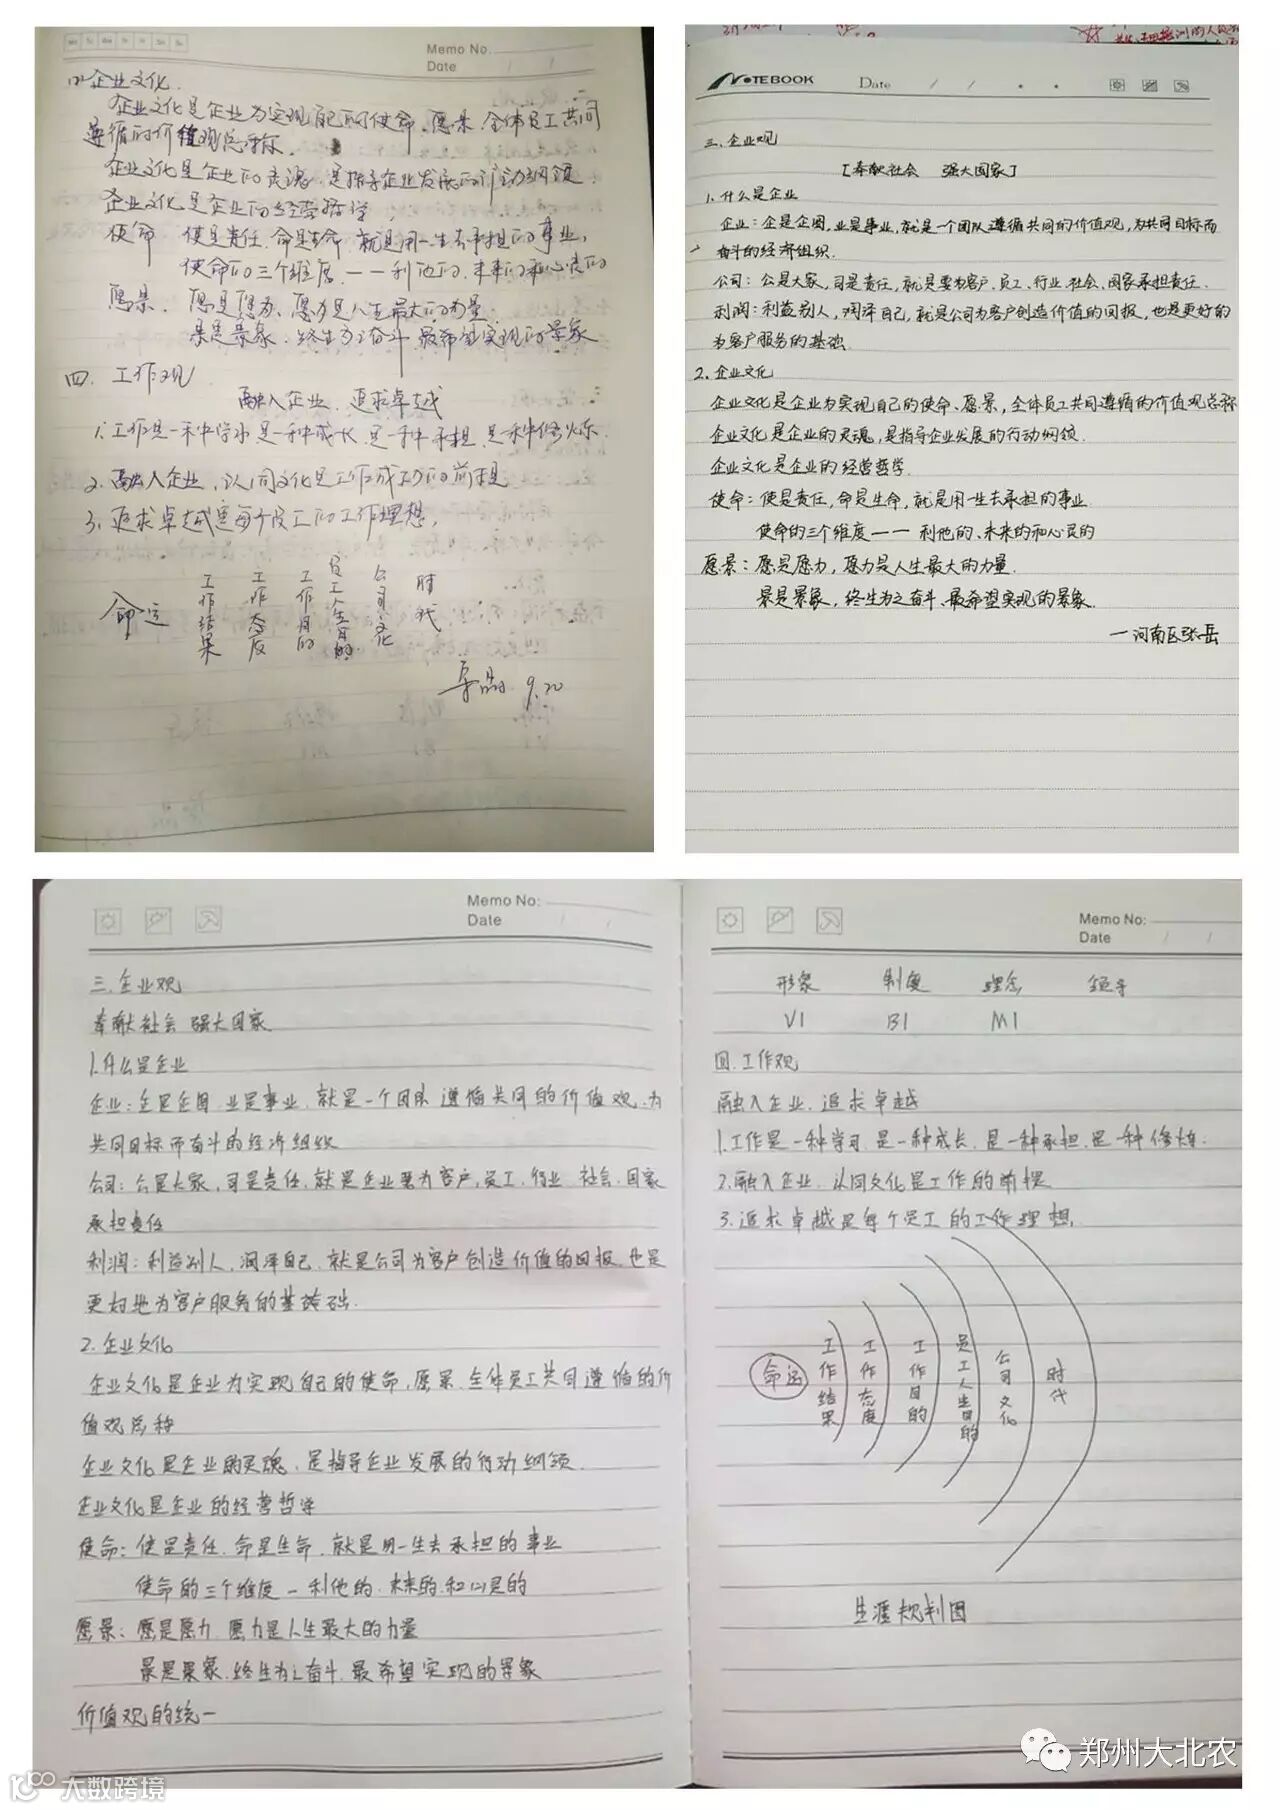 Memo No.
Date / /
(2) 企业文化
企业文化是企业为实现自己的使命、愿景、全体员工共同
遵循的价值观总称.
企业文化是企业的灵魂.是指导企业发展的行动纲领.
企业文化是企业的经营哲学
使命 使是责任.命是生命 就是用一生去承担的事业,
使命的三个维度——利他的、未来的和心灵的
愿景. 愿是愿力、愿力是人生最大的力量
景是景象.终生为之奋斗 最希望实现的景象
四. 工作观
融入企业、追求卓越
1. 工作是一种学习 是一种成长 是一种承担 是一种修炼.
2. 融入企业,认同文化是工作成功的前提
3. 追求卓越是每个员工的工作理想,
命运 工作结果 工作态度 工作目的 员工人生目的 公司文化 时代
9.20
NOTEBOOK Date / /
三.企业观
[奉献社会 强大国家]
1.什么是企业
企业:企是企图,业是事业,就是一个团队遵循共同的价值观,为共同目标而
奋斗的经济组织.
公司:公是大家,司是责任,就是要为客户、员工、行业、社会、国家承担责任.
利润:利益别人,润泽自己,就是公司为客户创造价值的回报,也是更好的
为客户服务的基础.
2.企业文化
企业文化是企业为实现自己的使命、愿景,全体员工共同遵循的价值观总称
企业文化是企业的灵魂,是指导企业发展的行动纲领.
企业文化是企业的经营哲学.
使命:使是责任,命是生命,就是用一生去承担的事业
使命的三个维度——利他的、未来的和心灵的
愿景:愿是愿力,愿力是人生最大的力量.
景是景象,终生为之奋斗、最希望实现的景象.
—河南区张岳
Memo No:
Date / /
三.企业观
奉献社会 强大国家
1.什么是企业
企业:企是企图.业是事业.就是一个团队遵循共同的价值观.为
共同目标而奋斗的经济组织
公司:公是大家,司是责任.就是企业要为客户,员工.行业.社会.国家
承担责任
利润:利益别人,润泽自己.就是公司为客户创造价值的回报.也是
更好地为客户服务的基础.
2.企业文化
企业文化是企业为实现自己的使命,愿景.全体员工共同遵循的价
值观总称
企业文化是企业的灵魂.是指导企业发展的行动纲领.
企业文化是企业的经营哲学
使命:使是责任.命是生命.就是用一生去承担的事业
使命的三个维度—利他的.未来的.和心灵的
愿景:愿是愿力 愿力是人生最大的力量
景是景象.终生为之奋斗.最希望实现的景象
价值观的统一
Memo No:
Date / /
形象 制度 理念 领导
VI BI MI
四.工作观
融入企业.追求卓越
1.工作是一种学习.是一种成长.是一种承担.是一种修炼.
2.融入企业.认同文化是工作的前提
3.追求卓越是每个员工的工作理想.
命运 工作结果 工作态度 工作目的 员工人生目的 公司文化 时代
生涯规划图
郑州大北农
大数跨境